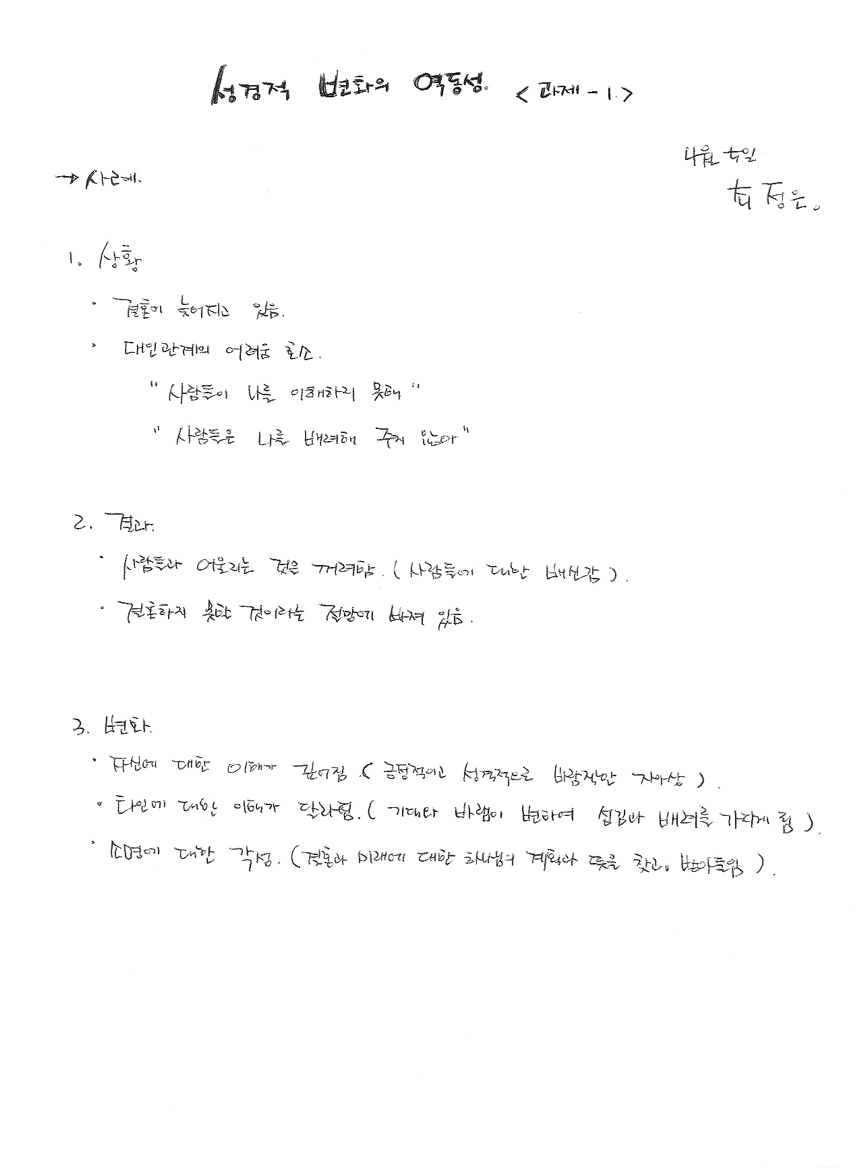 성경적 변화의 역동성. <과제-1.>
4월 5일
→ 사례.
최정은.
1. 상황
· 결혼이 늦어지고 있음.
· 대인관계의 어려움 호소.
"사람들이 나를 이해하지 못해"
"사람들은 나를 배려해 주지 않아"
2. 결과.
· 사람들과 어울리는 것을 꺼려함. (사람들에 대한 배신감).
· 결혼하지 못할 것이라는 절망에 빠져 있음.
3. 변화.
· 자신에 대한 이해가 깊어짐 (긍정적이고 성경적으로 바람직한 자아상).
· 타인에 대한 이해가 달라짐. (기대와 바램이 변하여 섬김과 배려를 가지게 됨).
· 소명에 대한 각성. (결혼과 미래에 대한 하나님의 계획과 뜻을 찾고. 받아들임).